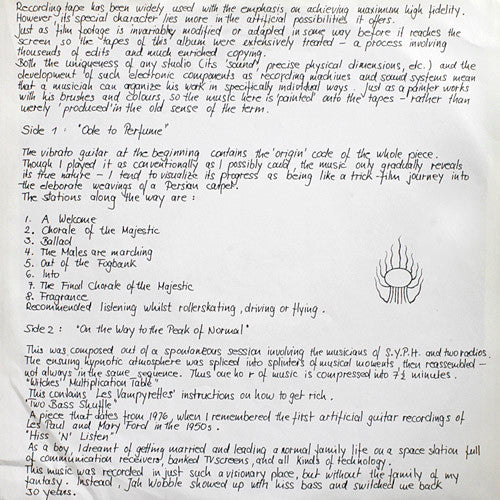 Recording tape has been widely used with the emphasis on achieving maximum high fidelity.
However, its special character lies more in the artificial possibilities it offers.
Just as film footage is invariably modified or adapted in some way before it reaches the
screen, so the tapes of this album were extensively treated - a process involving
thousands of edits and much enriched copying.
Both the uniqueness of any studio (its 'sound', precise physical dimensions, etc.) and the
development of such electronic components as recording machines and sound systems mean
that a musician can organize his work in specifically individual ways. Just as a painter works
with his brushes and colours, so the music here is 'painted' onto the tapes - rather than
merely 'produced' in the old sense of the term.
Side 1: "Ode to Perfume"
The vibrato guitar at the beginning contains the 'origin' code of the whole piece.
Though I played it as conventionally as I possibly could, the music only gradually reveals
its true nature - I tend to visualize its progress as being like a trick-film journey into
the eleborate weavings of a Persian carpet.
The stations along the way are:
1. A Welcome
2. Chorale of the Majestic
3. Ballad
4. The Males are marching
5. Out of the Fogbank
6. Into
7. The Final Chorale of the Majestic
8. Fragrance
Recommended listening whilst rollerskating, driving or flying.
Side 2: "On the Way to the Peak of Normal"
This was composed out of a spontaneous session involving the musicians of S.Y.P.H. and two radios.
The ensuing hypnotic atmosphere was spliced into splinters of musical moments, then reassembled -
not always in the same sequence. Thus one ho r of music is compressed into 7½ minutes.
"Witches' Multiplication Table"
This contains 'Les Vampyrettes' instructions on how to get rich.
"Two Bass Shuffle"
A piece that dates from 1976, when I remembered the first artificial guitar recordings of
Les Paul and Mary Ford in the 1950s.
"Hiss 'N' Listen"
As a boy, I dreamt of getting married and leading a normal family life on a space station full
of communication receivers, banked TV screens, and all kinds of technology.
This music was recorded in just such a visionary place, but without the family of my
fantasy. Instead, Jah Wobble showed up with his bass and switched me back
30 years.